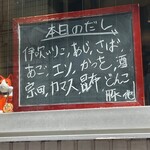 本日のだし
伊吹いりこ、あじ、さば、
あご、エソ、かつを、酒
宗田、カマス、昆布、どんこ
豚、他